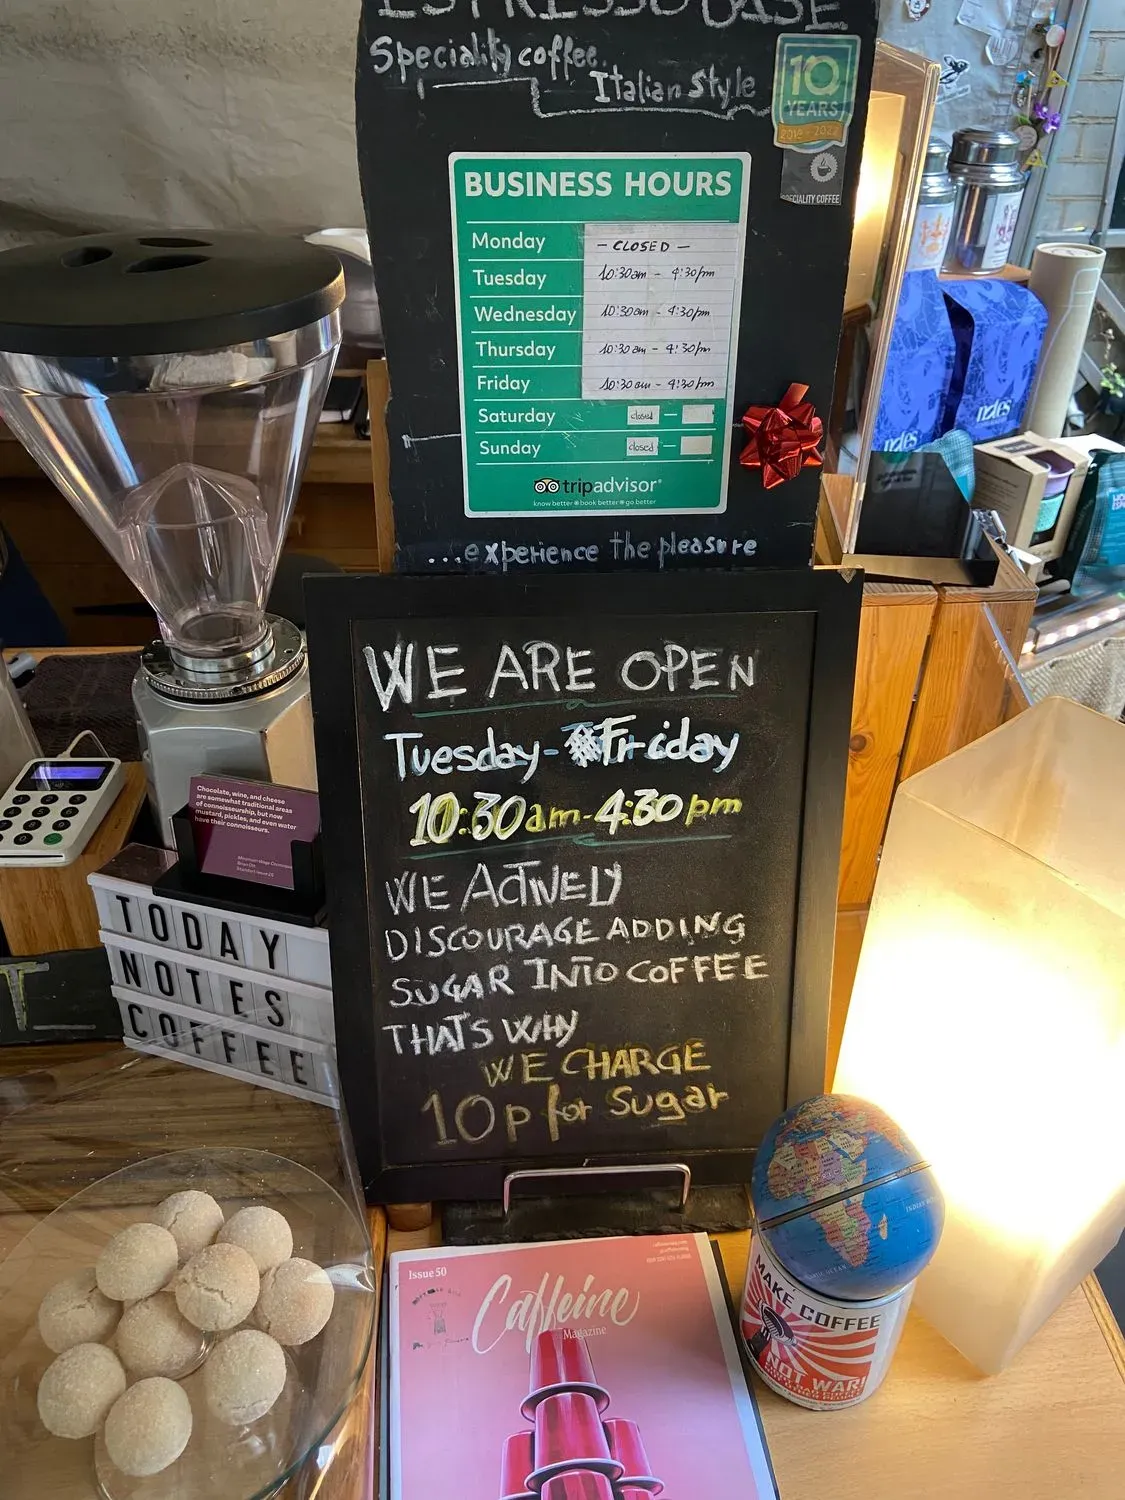 ESPRESSO BASE
Speciality coffee.
Italian Style
10
YEARS
SPECIALITY COFFEE
BUSINESS HOURS
Monday - CLOSED -
Tuesday 10:30am - 4:30pm
Wednesday 10:30am - 4:30pm
Thursday 10:30am - 4:30pm
Friday 10:30am - 4:30pm
Saturday closed -
Sunday closed -
tripadvisor®
know better book better go better
...experience the pleasure
WE ARE OPEN
Tuesday - Friday
10:30am - 4:30pm
WE ACTIVELY
DISCOURAGE ADDING
SUGAR INTO COFFEE
THATS WHY
WE CHARGE
10p for Sugar
Chocolate, wine, and cheese
are somewhat traditional areas
of connoisseurship, but now
mustard, pickles, and even water
have their connoisseurs.
TODAY
NOTES
COFFEE
T
notes
notes
Issue 50
Caffeine
Magazine
INDIAN
OCEAN
MAKE COFFEE
NOT WAR!